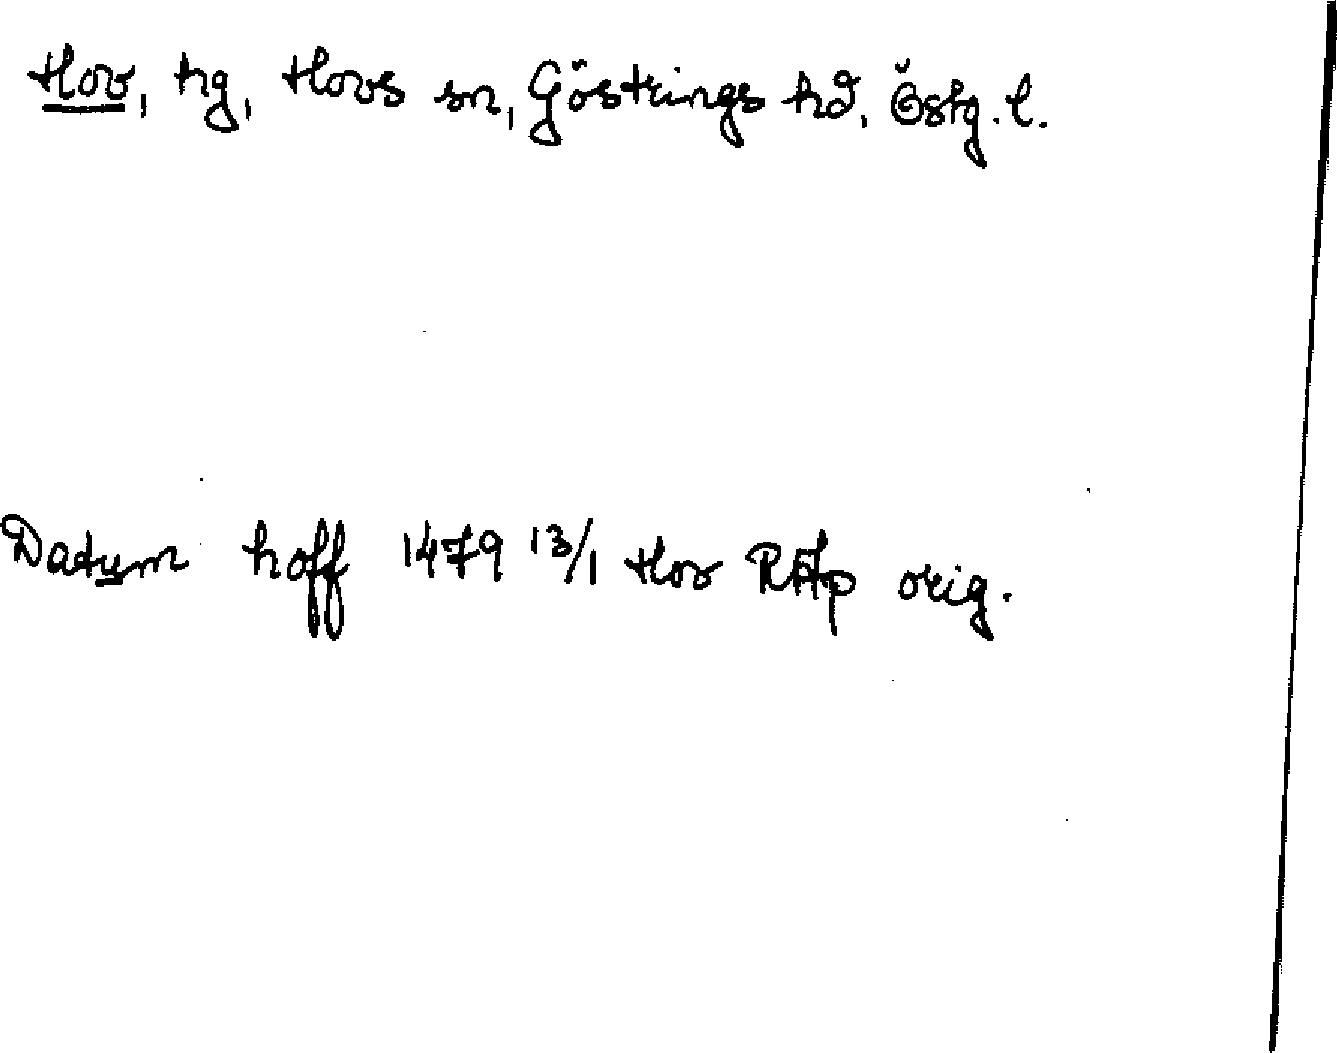 Hov, hg, Hovs sn, Göstrings hd, Östg. l.
Datum hoff 1479 13/1 Hov RAp orig.